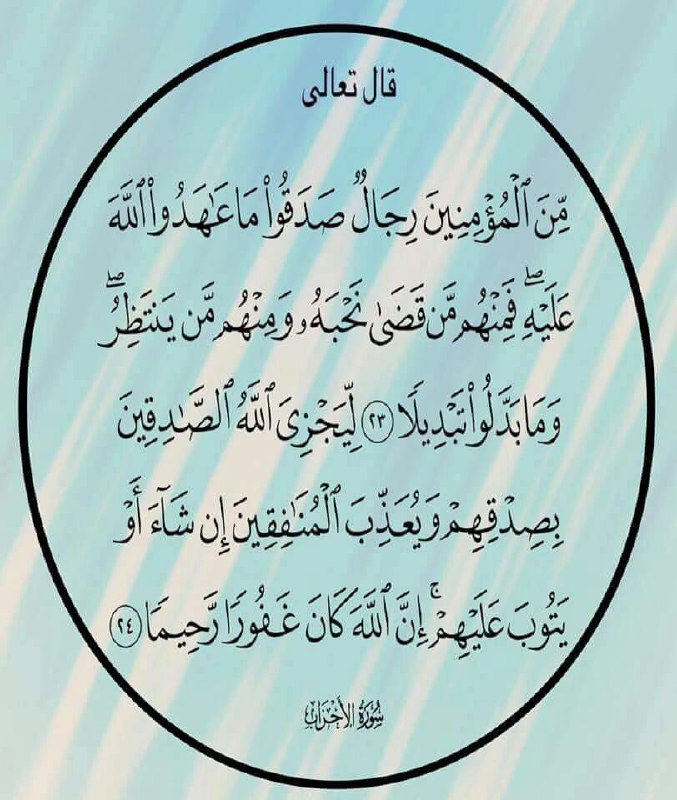 قال تعالى
مِّنَ ٱلْمُؤْمِنِينَ رِجَالٌ صَدَقُوا۟ مَا عَـٰهَدُوا۟ ٱللَّهَ
عَلَيْهِ ۖ فَمِنْهُم مَّن قَضَىٰ نَحْبَهُۥ وَمِنْهُم مَّن يَنتَظِرُ ۖ
وَمَا بَدَّلُوا۟ تَبْدِيلًا ٢٣ لِّيَجْزِىَ ٱللَّهُ ٱلصَّـٰدِقِينَ
بِصِدْقِهِمْ وَيُعَذِّبَ ٱلْمُنَـٰفِقِينَ إِن شَآءَ أَوْ
يَتُوبَ عَلَيْهِمْ ۚ إِنَّ ٱللَّهَ كَانَ غَفُورًا رَّحِيمًا ٢٤
سُورَةُ الأَحْزَاب